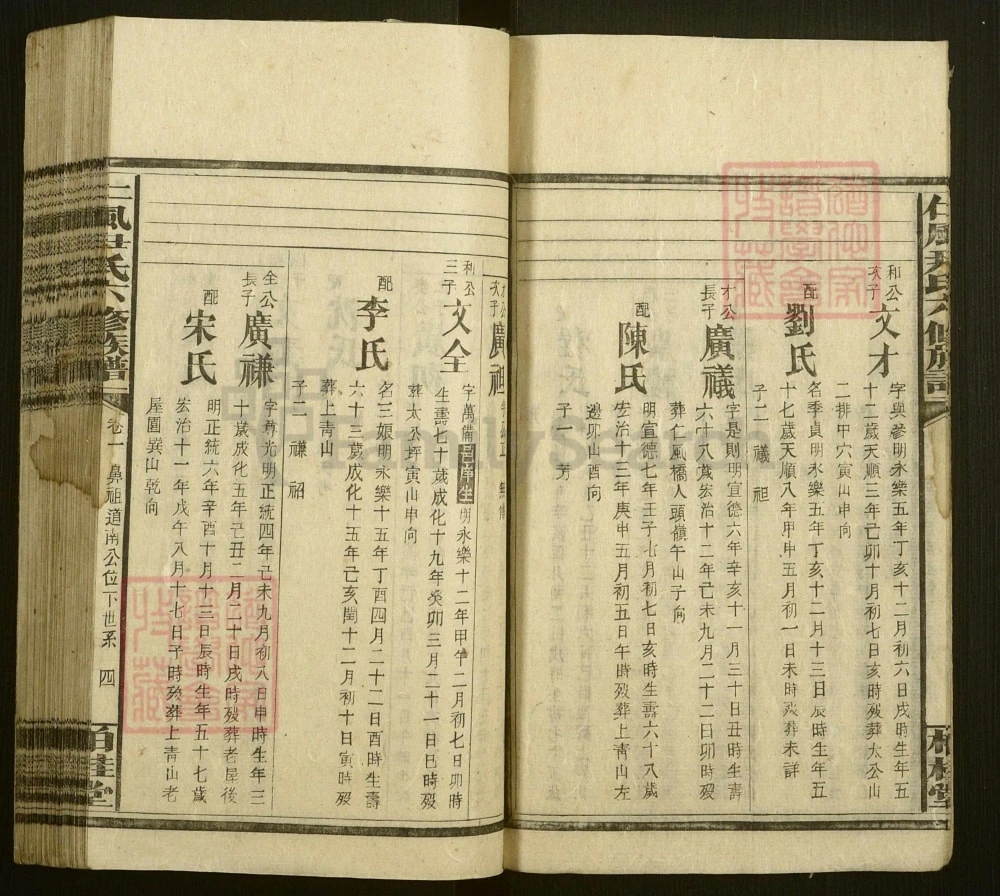 和公次子
文才
字與參明永樂五年丁亥十二月初六日戌時生年五
十二歲天順三年己卯十月初七日亥時歿葬太公山
二排甲穴寅山申向
配
劉氏
名季貞明永樂五年丁亥十二月十三日辰時生年五
十七歲天順八年甲申五月初一日未時歿葬未詳
子二 議 祖
才公長子
廣議
字是則明宣德六年辛亥十一月三十日丑時生壽
六十八歲宏治十二年己未九月二十二日卯時歿
葬仁風橋人頭嶺午山子向
配
陳氏
明宣德七年壬子七月初七日亥時生壽六十八歲
宏治十三年庚申五月初五日午時歿葬上青山左
邊卯山酉向
子一 芳
才公次子
廣祖
和公三子
文全
字萬備邑庠生明永樂十二年甲午二月初七日卯時
生壽七十歲成化十九年癸卯三月二十一日巳時歿
葬太公坪寅山申向
配
李氏
名三娘明永樂十五年丁酉四月二十二日酉時生壽
六十三歲成化十五年己亥閏十二月初十日寅時歿
葬上青山
子二 謙 祒
全公長子
廣謙
字尊光明正統四年己未九月初八日申時生年三
十歲成化五年己丑二月二十日戌時歿葬老屋後
配
宋氏
明正統六年辛酉十月十三日辰時生年五十七歲
宏治十一年戊午八月十七日子時歿葬上青山老
屋園巽山乾向
風尹氏六修族譜
卷一 鼻祖道南公位下世系 四
柏桂堂
FamilySearch